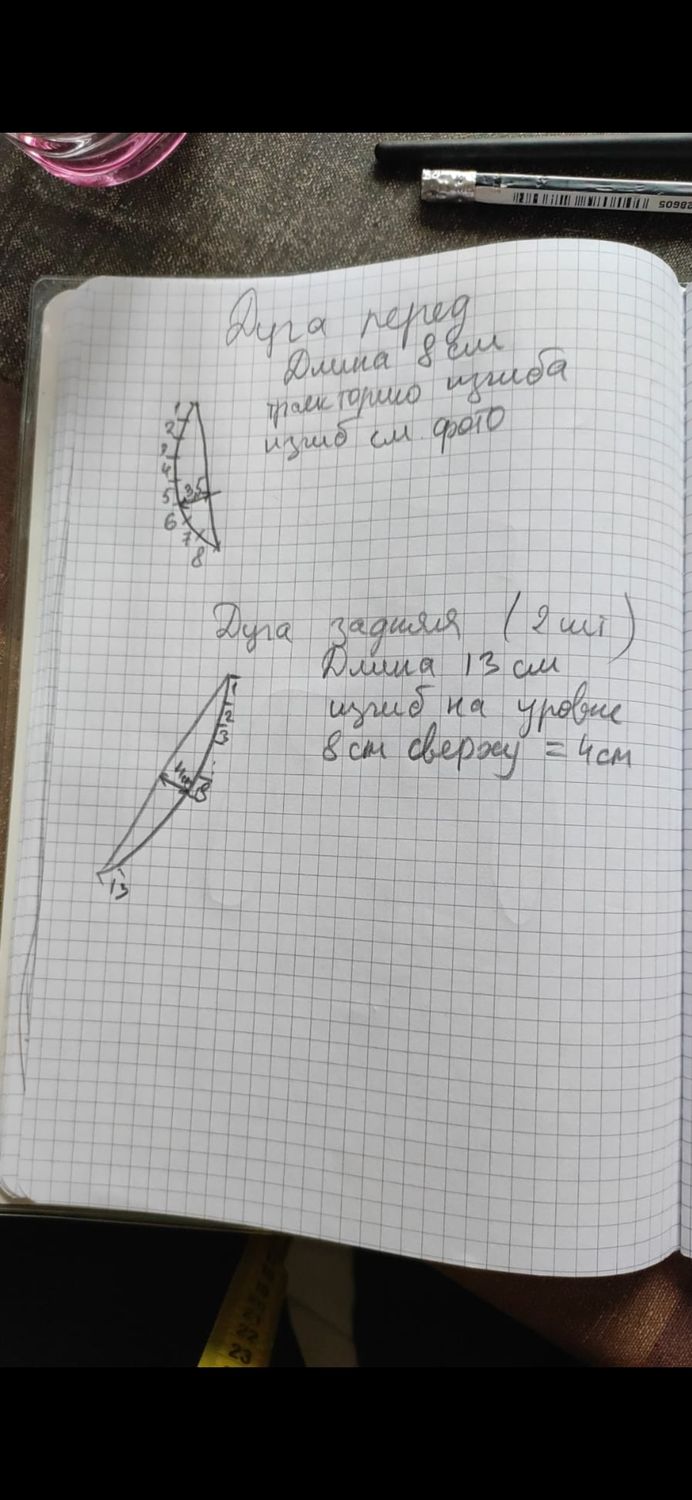 28605
Дуга перед
Длина 8 см
траекторию изгиба
изгиб см. фото
1
2
3
4
5
3,5
6
7
8
Дуга задняя (2 шт)
Длина 13 см
изгиб на уровне
8 см сверху = 4 см
1
2
3
4 см
8
13
23